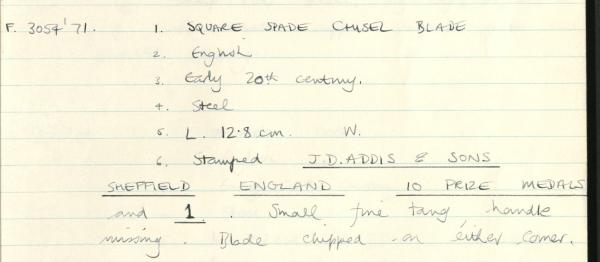 F. 3054'71. 1. SQUARE SPADE CHISEL BLADE
2. English
3. Early 20th century.
4. Steel
5. L. 12.8 cm. W.
6. Stamped J.D. ADDIS & SONS
SHEFFIELD ENGLAND 10 PRIZE MEDALS
and 1. Small fine tang, handle
missing. Blade chipped on either corner.